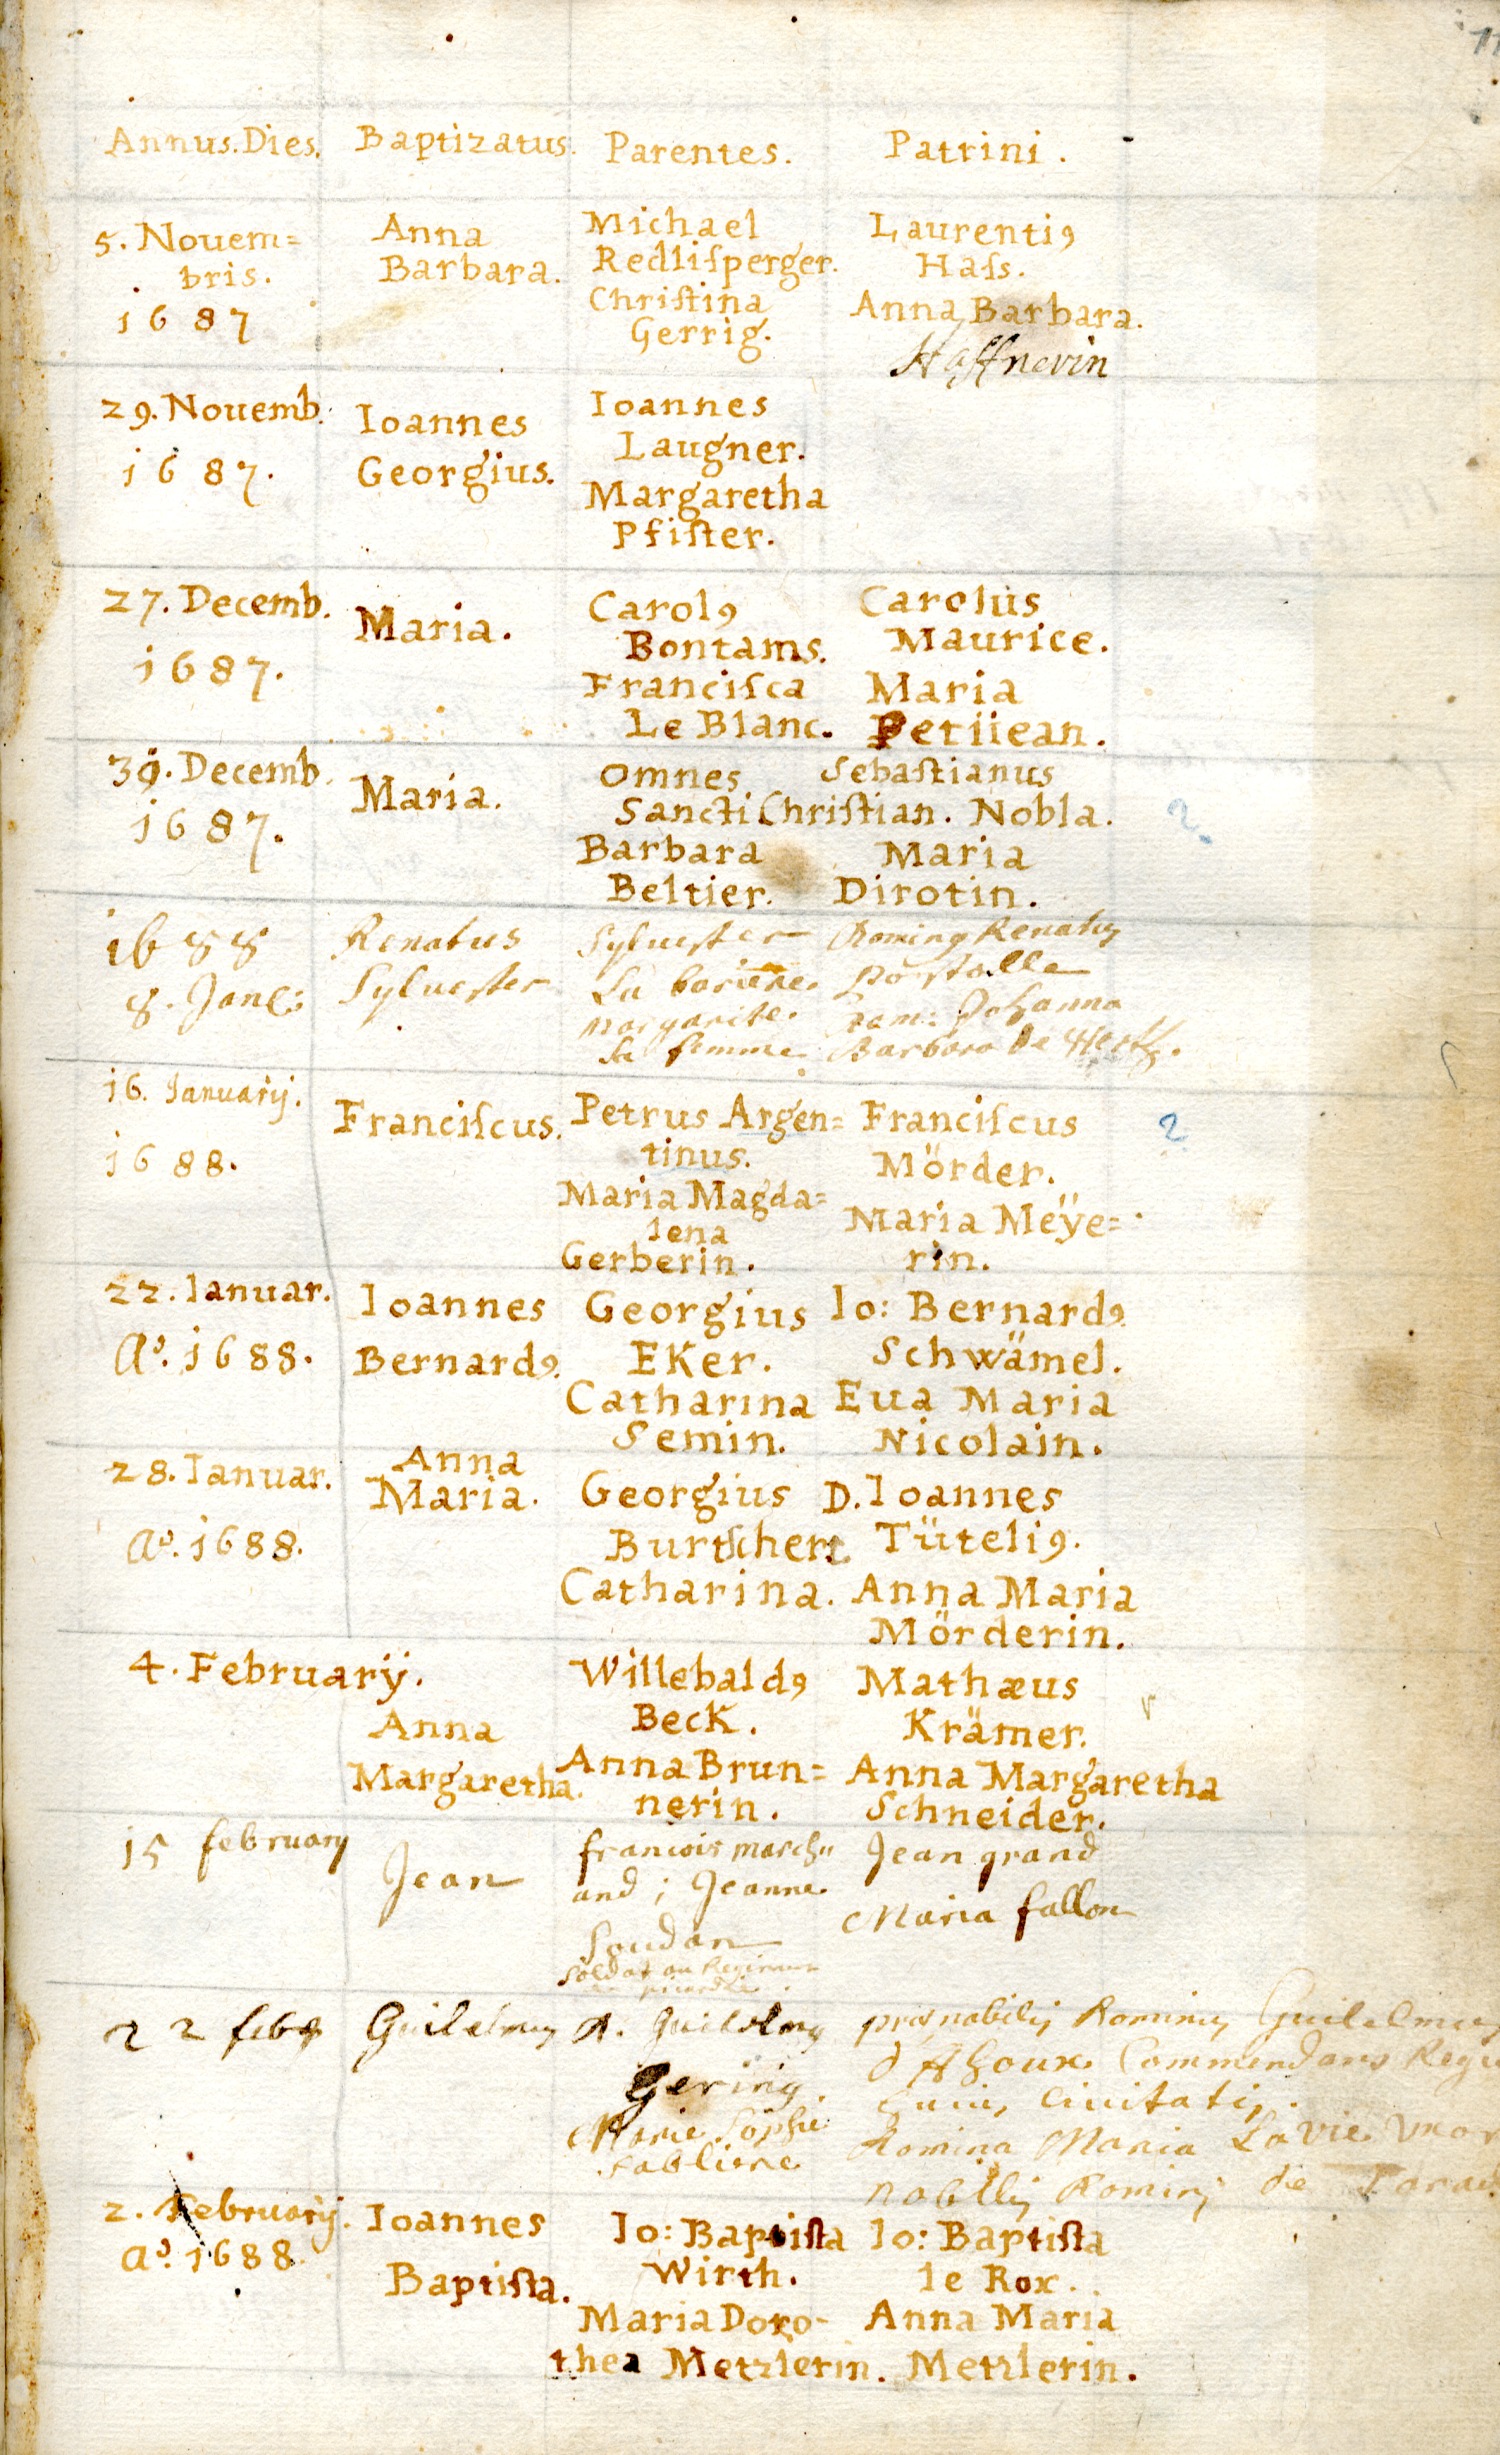 Annus. Dies. Baptizatus. Parentes. Patrini.
5. Nouem=
bris.
1687
Anna
Barbara.
Michael
Redliſperger.
Chriſtina
Gerrig.
Laurentiꝰ
Haſs.
Anna Barbara.
Haffnerin
29. Nouemb.
1687.
Ioannes
Georgius.
Ioannes
Laugner.
Margaretha
Pfiſter.
27. Decemb.
1687.
Maria.
Carolꝰ
Bontams.
Franciſca
Le Blanc.
Carolus
Maurice.
Maria
Petiiean.
30. Decemb.
1687.
Maria.
Omnes
Sancti Chriſtian.
Barbara
Beltier.
Sebaſtianus
Nobla.
Maria
Dirotin.
2.
1688
8. Jan
Renatus
Sylvester
Sylvester
La bariere.
Margarite.
Sa femme
Renatꝰ
Johanna
Barbara de
16. Ianuarÿ.
1688.
Franciſcus.
Petrus Argen=
tinus.
Maria Magda=
lena
Gerberin.
Franciſcus
Mörder.
Maria Meÿe=
rin.
2
22. Ianuar.
Aº. 1688.
Ioannes
Bernardꝰ.
Georgius
EKer.
Catharina
Semin.
Io: Bernardꝰ
Schwämel.
Eua Maria
Nicolain.
28. Ianuar.
Aº. 1688.
Anna
Maria.
Georgius
Burtſchert
Catharina.
D. Ioannes
Tüteliꝰ.
Anna Maria
Mörderin.
4. Februarÿ.
Anna
Margaretha.
Willebaldꝰ
Beck.
Anna Brun=
nerin.
Mathæus
Krämer.
Anna Margaretha
Schneider.
15 february
Jean
francois march"
and; Jeanne
Soudan
Soldat au Regiment
de picardie.
Jean grand
Maria fallon
22 feb
Guilelmꝰ
Guilelmꝰ
Gering.
Marie Sophie
Sabliere
prænobilis Dominꝰ Guilelmus
Commendans
huiꝰ Ciuitatis.
Domina Maria La vie
nobilis Domini de
2. February.
Aº. 1688.
Ioannes
Baptiſta.
Io: Baptiſta
Wirth.
Maria Doro-
thea Metzlerin.
Io: Baptiſta
le Rox.
Anna Maria
Metzlerin.